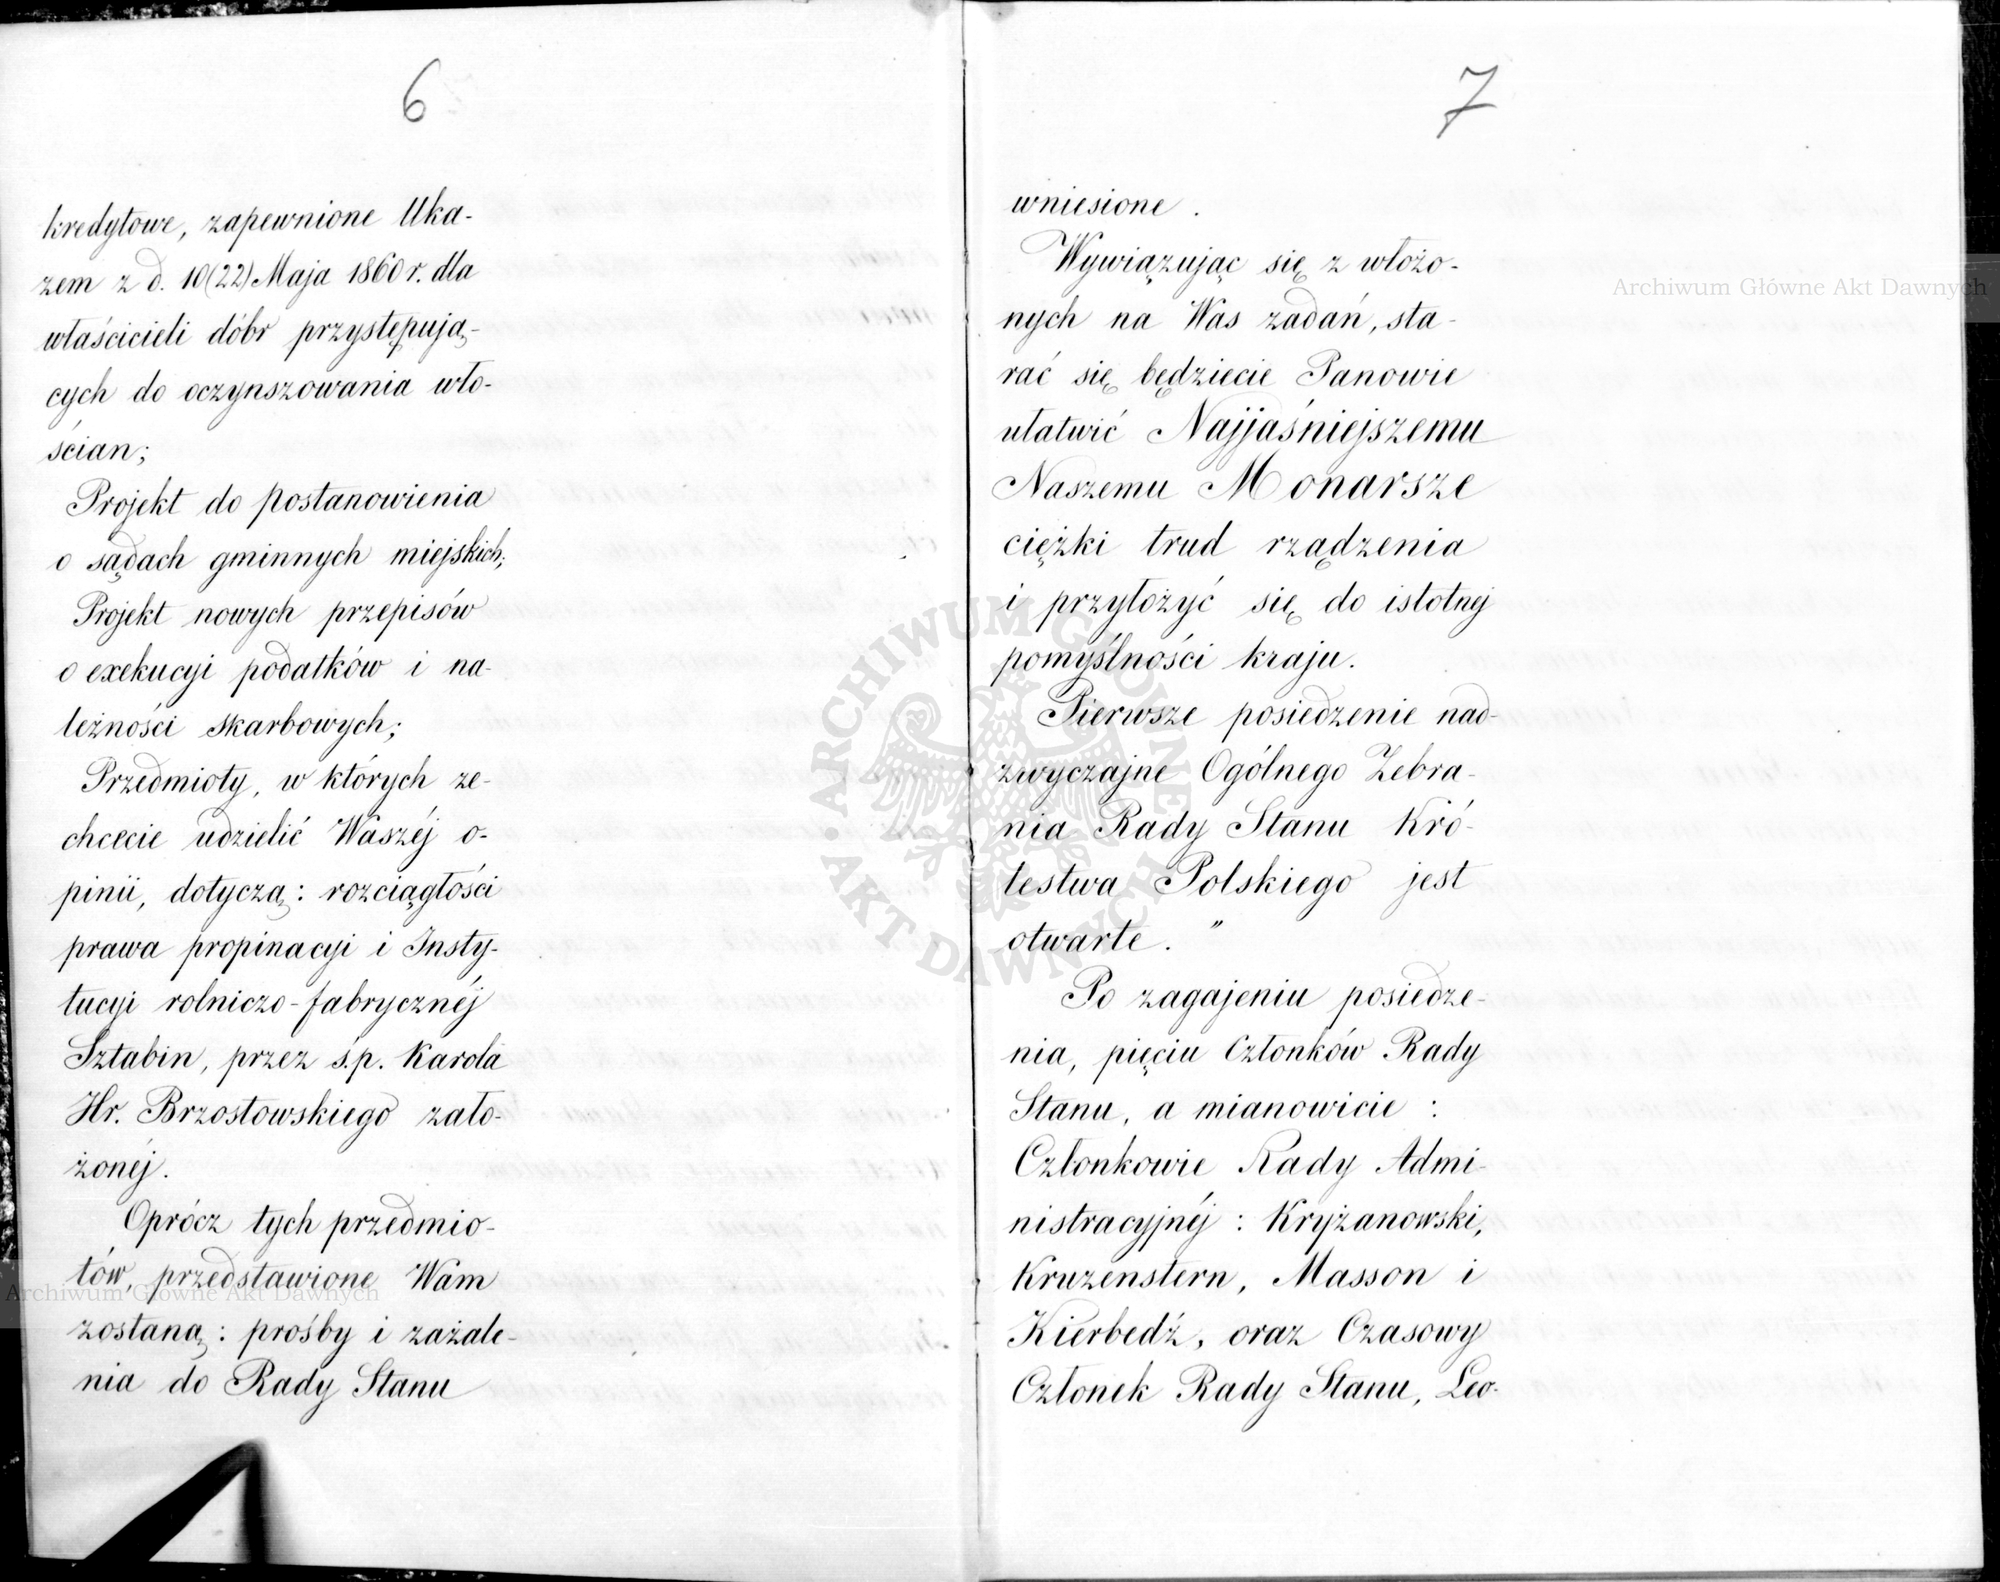 6
kredytowe, zapewnione Uka-
zem z d. 10(22) Maja 1860 r. dla
właścicieli dóbr przystępują-
cych do oczynszowania wło-
ścian;
Projekt do postanowienia
o sądach gminnych miejskich;
Projekt nowych przepisów
o exekucyi podatków i na-
leżności skarbowych;
Przedmioty, w których ze-
chcecie udzielić Waszéj o-
pinii, dotyczą: rozciągłości
prawa propinacyi i Insty-
tucyi rolniczo-fabrycznéj
Sztabin, przez ś.p. Karola
Hr. Brzostowskiego zało-
żonéj.
Oprócz tych przedmio-
tów, przedstawione Wam
zostaną: prośby i zażale-
nia do Rady Stanu
7
wniesione.
Wywiązując się z włożo-
nych na Was zadań, sta-
rać się będziecie Panowie
ułatwić Najjaśniejszemu
Naszemu Monarsze
ciężki trud rządzenia
i przyłożyć się do istotnej
pomyślności kraju.
Pierwsze posiedzenie nad-
zwyczajne Ogólnego Zebra-
nia Rady Stanu Kró-
lestwa Polskiego jest
otwarte. "
Po zagajeniu posiedze-
nia, pięciu Członków Rady
Stanu, a mianowicie :
Członkowie Rady Admi-
nistracyjnéj : Kryżanowski,
Kruzenstern, Masson i
Kierbedź, oraz Czasowy
Członek Rady Stanu, Leo-
Archiwum Główne Akt Dawnych
Archiwum Główne Akt Dawnych
ARCHIWUM GŁÓWNE • AKT DAWNYCH •